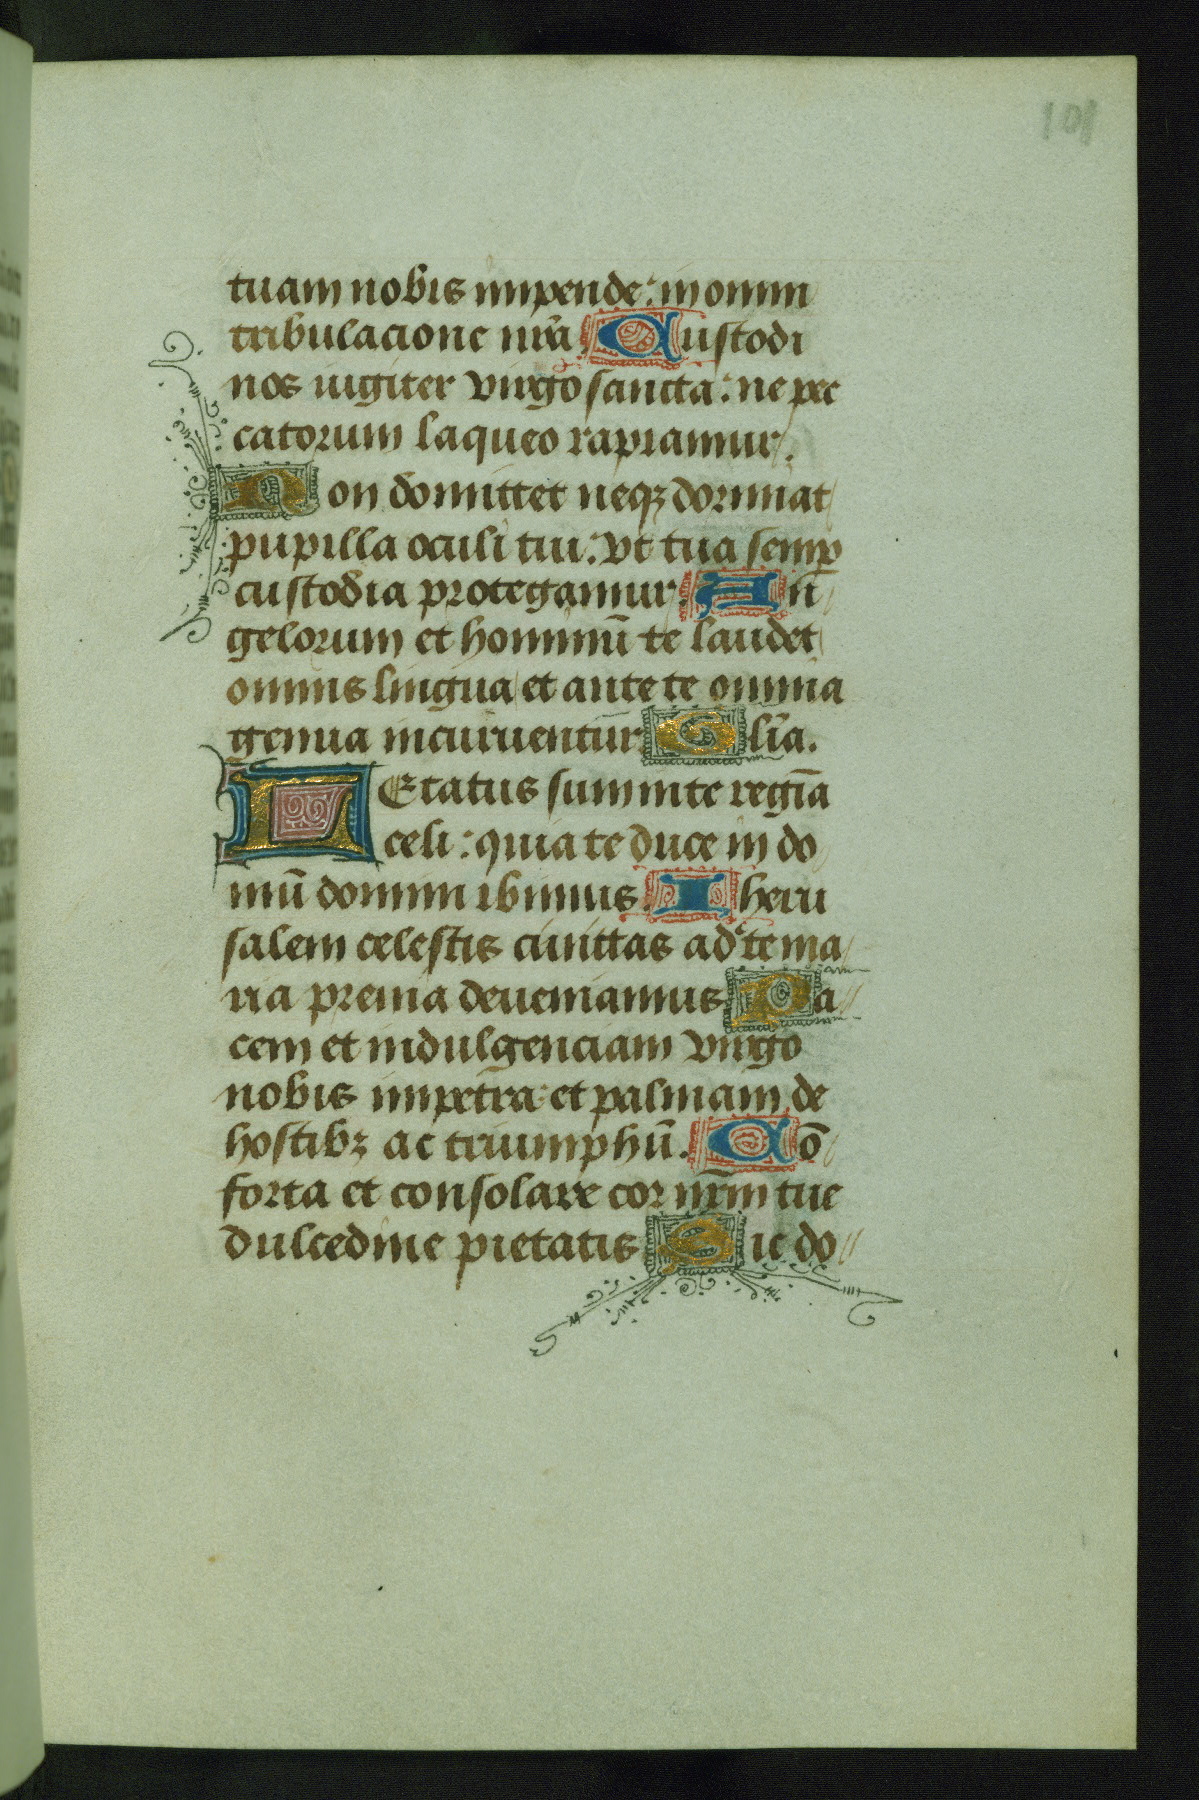 101
tuam nobis impende: in omni
tribulacione nr̄a Custodi
nos iugiter virgo sancta: ne pec
catorum laqueo rapiamur.
Non domittet neqꝫ dormiat
pupilla oculi tui: vt tua semꝑ
custodia protegamur. An
gelorum et hominū te laudet
omnis lingua et ante te omnia
genua incuruentur Glīa.
LEtatus sum in te regīa
celi: quia te duce in do
mū domini ibimus. Iheru
salem celestis ciuitas ad te ma
ria premia deueniamus Pa
cem et indulgenciam virgo
nobis impetra: et palmam de
hostibꝫ ac triumphū. Cō
forta et consolare cor nr̄m tue
dulcedine pietatis Sic do